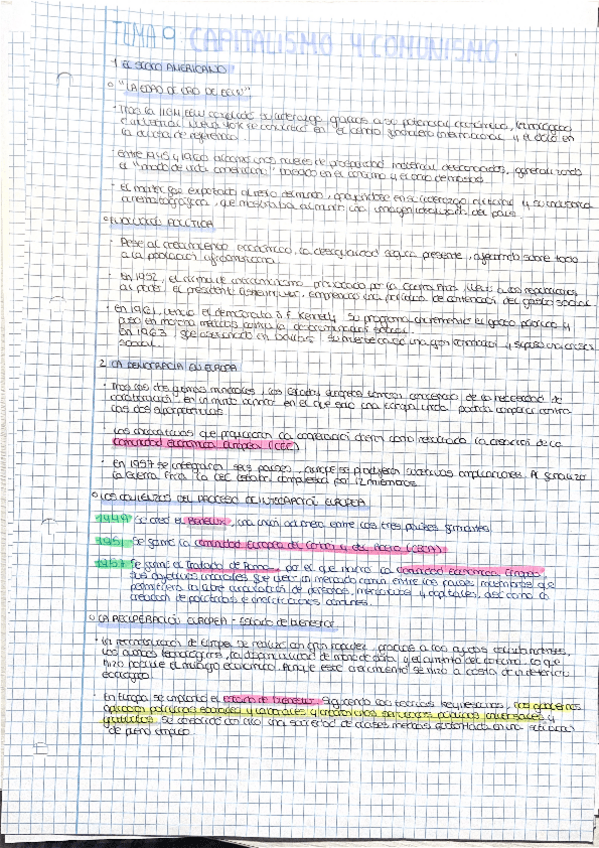 TEMA 9 CAPITALISMO Y COMUNISMO
1. EL SUEÑO AMERICANO
"LA EDAD DE ORO DE EEUU"
· Tras la IIGM, EEUU consolidó su liderazgo gracias a su potencial económico, tecnológico
e industrial. Nueva York se convirtió en el centro financiero internacional y el dólar en
la divisa de referencia.
· Entre 1945 y 1960 alcanzó unos niveles de prosperidad material desconocidos, generalizando
el "modo de vida americano" basado en el consumo y el ocio de masas.
· El modelo fue exportado al resto del mundo, apoyándose en su liderazgo y su industria
cinematográfica, que mostraba al mundo una imagen idealizada del país.
EVOLUCIÓN POLÍTICA
· Pese al crecimiento económico, la desigualdad seguía presente, afectando sobre todo
a la población afroamericana.
· En 1952, el clima de anticomunismo provocado por la Guerra Fría, llevó a los republicanos
al poder. El presidente Eisenhower, emprendió una política de contención del gasto social.
· En 1961, venció el demócrata J.F. Kennedy. Su programa incrementó el gasto público y
puso en marcha medidas contra la discriminación
En 1963, fue asesinado en Dallas. Su muerte causó una gran conmoción y supuso una crisis
social.
2. LA DEMOCRACIA EN EUROPA
· Tras las dos guerras mundiales, los Estados europeos tomaron conciencia de la necesidad de
colaboración, en un mundo en el que solo una Europa unida podría competir contra
las dos superpotencias.
· Las que propiciaron la cooperación dieron como resultado la creación de la
Comunidad Económica Europea (CEE)
· En 1957 se integraron seis países, aunque se produjeron sucesivas ampliaciones. Al finalizar
la Guerra Fría la CEE estaba compuesta por 12 miembros.
LOS COMIENZOS DEL PROCESO DE INTEGRACIÓN EUROPEA
1944 Se creó el Benelux, una unión aduanera entre los tres países firmantes.
1951 Se firmó la Comunidad Europea del Carbón y del Acero (CECA)
1957 Se firmó el Tratado de Roma, por el que nació la Comunidad Económica Europea,
sus objetivos iniciales fue crear un mercado común entre los países miembros que
permitiera la libre circulación de personas, mercancías y capitales, así como la
creación de políticas e instituciones comunes.
LA RECUPERACIÓN EUROPEA - Estado de bienestar
· La reconstrucción de Europa se realizó con gran rapidez, gracias a las ayudas estadounidenses,
los avances tecnológicos, la disponibilidad de mano de obra y el aumento del consumo, lo que
hizo posible el milagro económico. Aunque este crecimiento se hizo a costa de un deterioro
ecológico.
· En Europa se implantó el estado de bienestar. Siguiendo las teorías keynesianas, los gobiernos
aplicaron políticas sociales y laborales y establecieron servicios públicos universales y
gratuitos. Se desarrolló con ello una sociedad de clases medias sustentada en una situación
de pleno empleo.